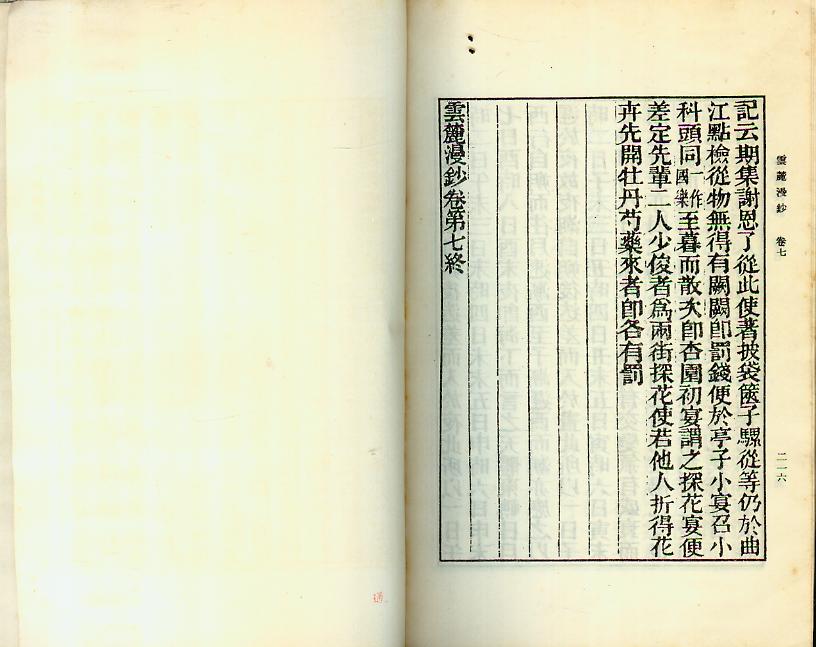 記云期集謝恩了從此使著披袋篋子騾從等仍於曲
江點檢從物無得有闕闕即罰錢便於亭子小宴召小
科頭同一作國樂至暮而散次即杏園初宴謂之探花宴便
差定先輩二人少俊者為兩街探花使若他人折得花
卉先開牡丹芍藥來者即各有罰
雲麓漫鈔卷第七終
雲麓漫鈔 卷七
二一六